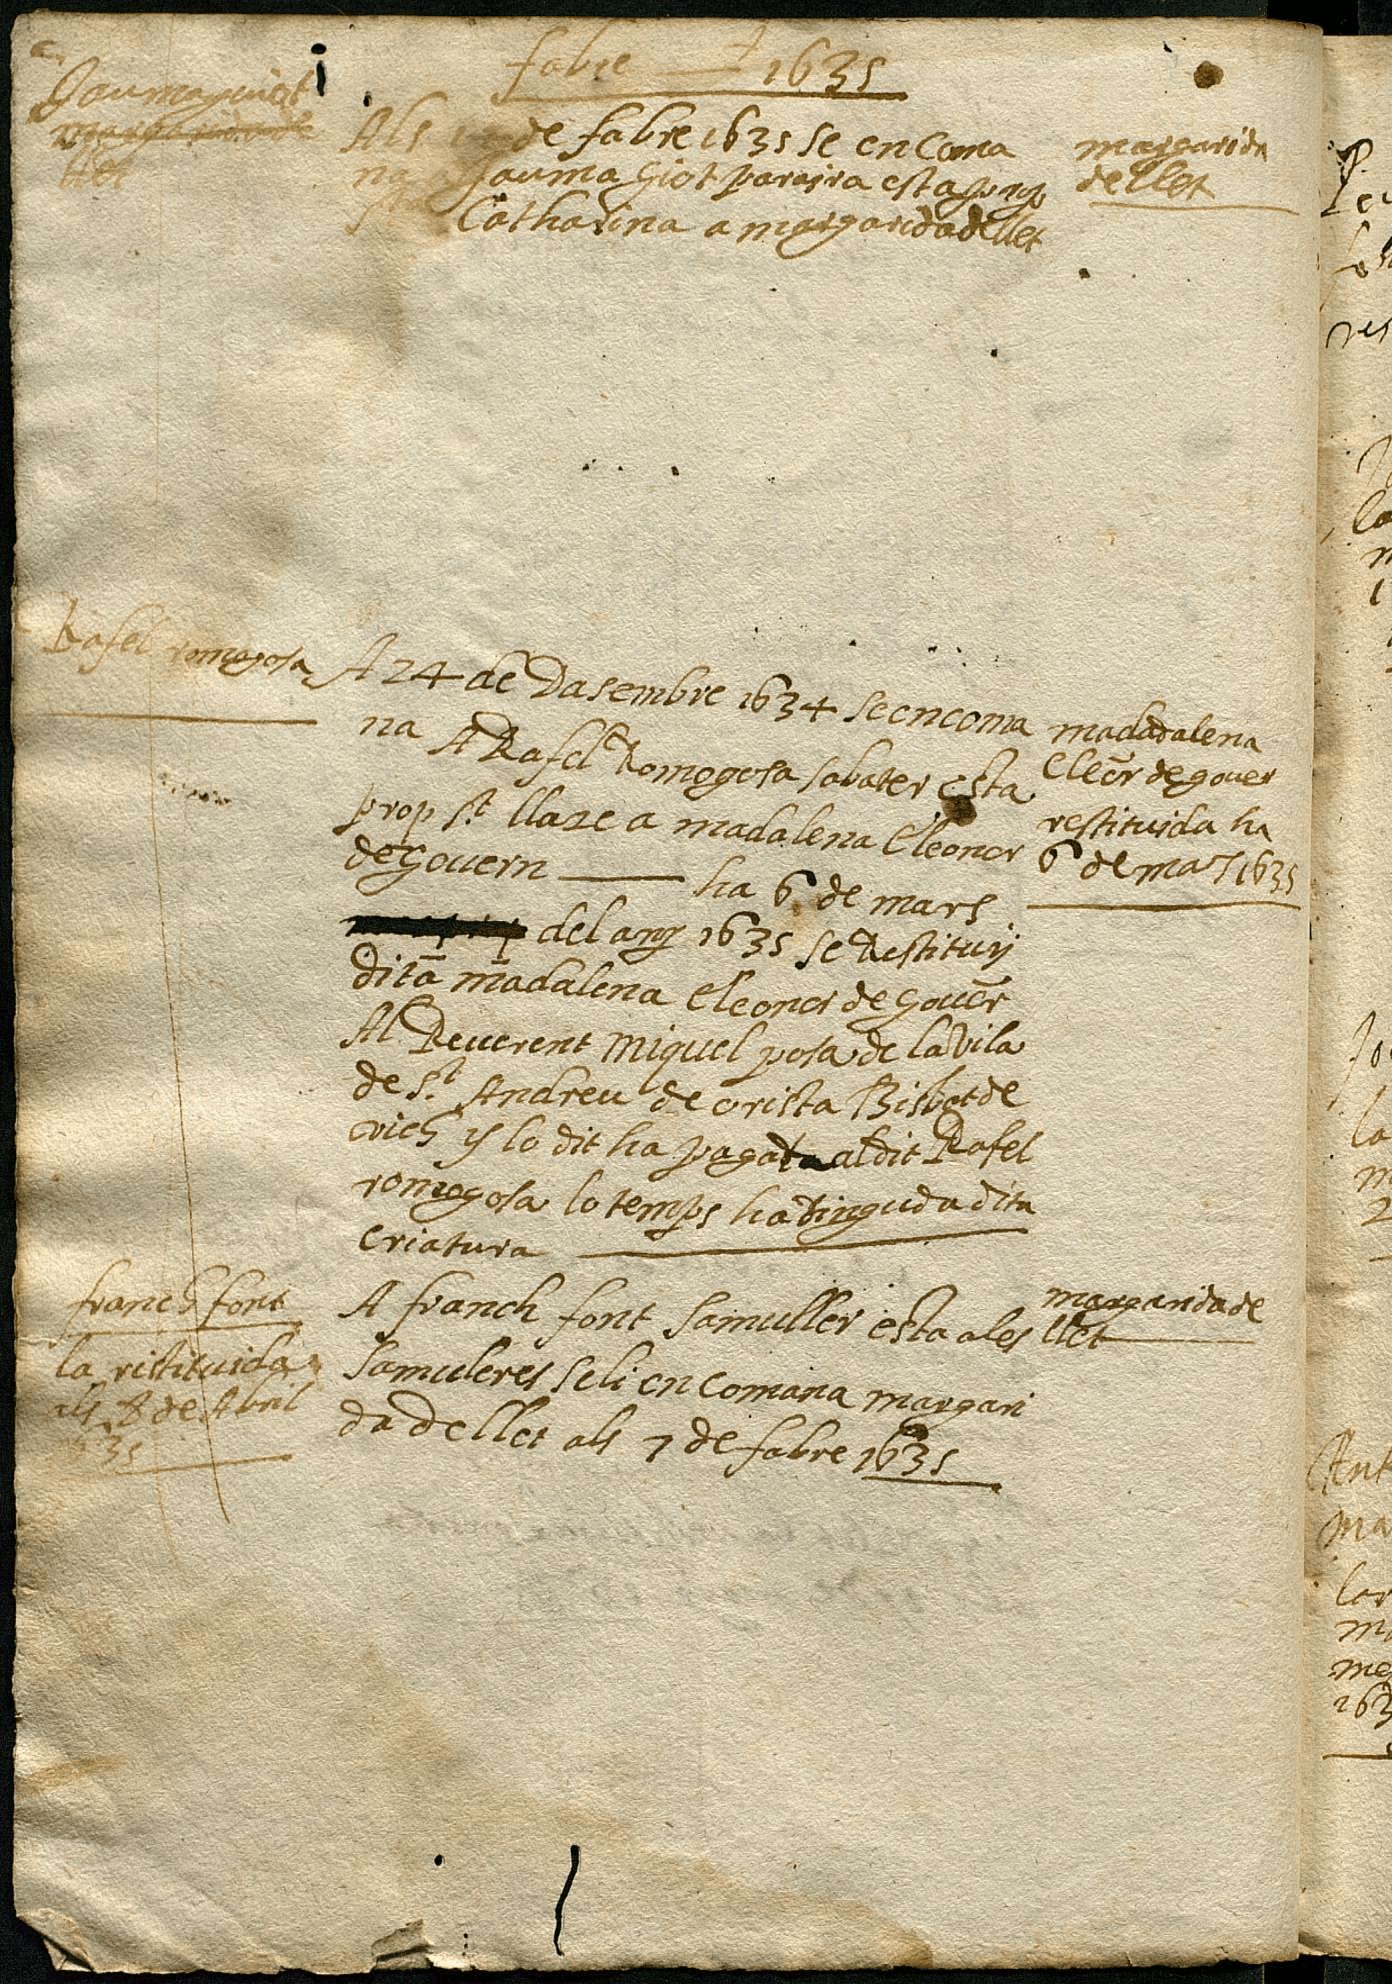 fabre — 1635
Jauma giot
margarida de
llet
Als de fabre 1635 se en coma
na a Jauma Giot paraira esta prop
Sta Catharina a margarida de llet
margarida
de llet
Rafel romagosa
A 24 de Dasembre 1634 se encoma
na A Rafel Romogosa sabater esta
prop St. llatze a madalena Eleonor
de Gouern — ha 6 de mars
del any 1635 se Restituij
dita madalena eleonor de Gouer
Al Reuerent Miquel posa de la vila
de St. Andreu de orista Bisbat de
vich y lo dit ha pagat al dit Rafel
romogosa lo temps ha tinguda dita
criatura
madalena
Eleor de gouer
restituida ha
6 de mars 1635
franch font
la restituida
als 8 de Abril
1635
A franch font Samuller esta a les
Samuleres se li en comana margari
da de llet als 7 de fabre 1635
margarida de
llet